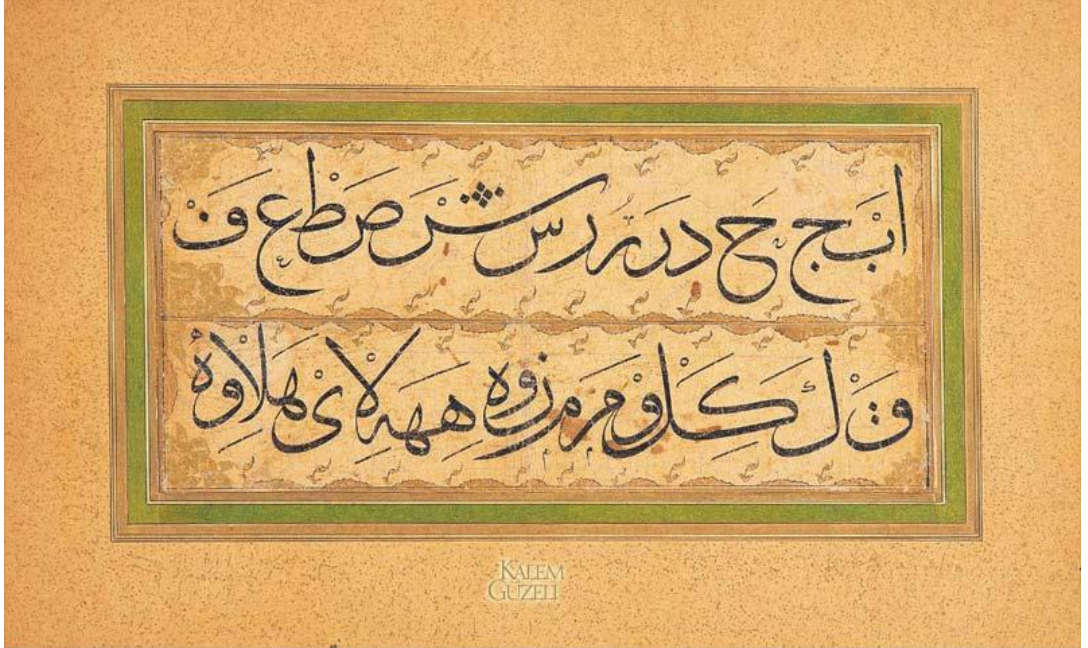 ا ب ج ح د ر ر ر س ش ص ط ع ف
ق ل ك كل و م م م ز و ه ه ه لا ى هلا و ه
KALEM
GÜZELİ